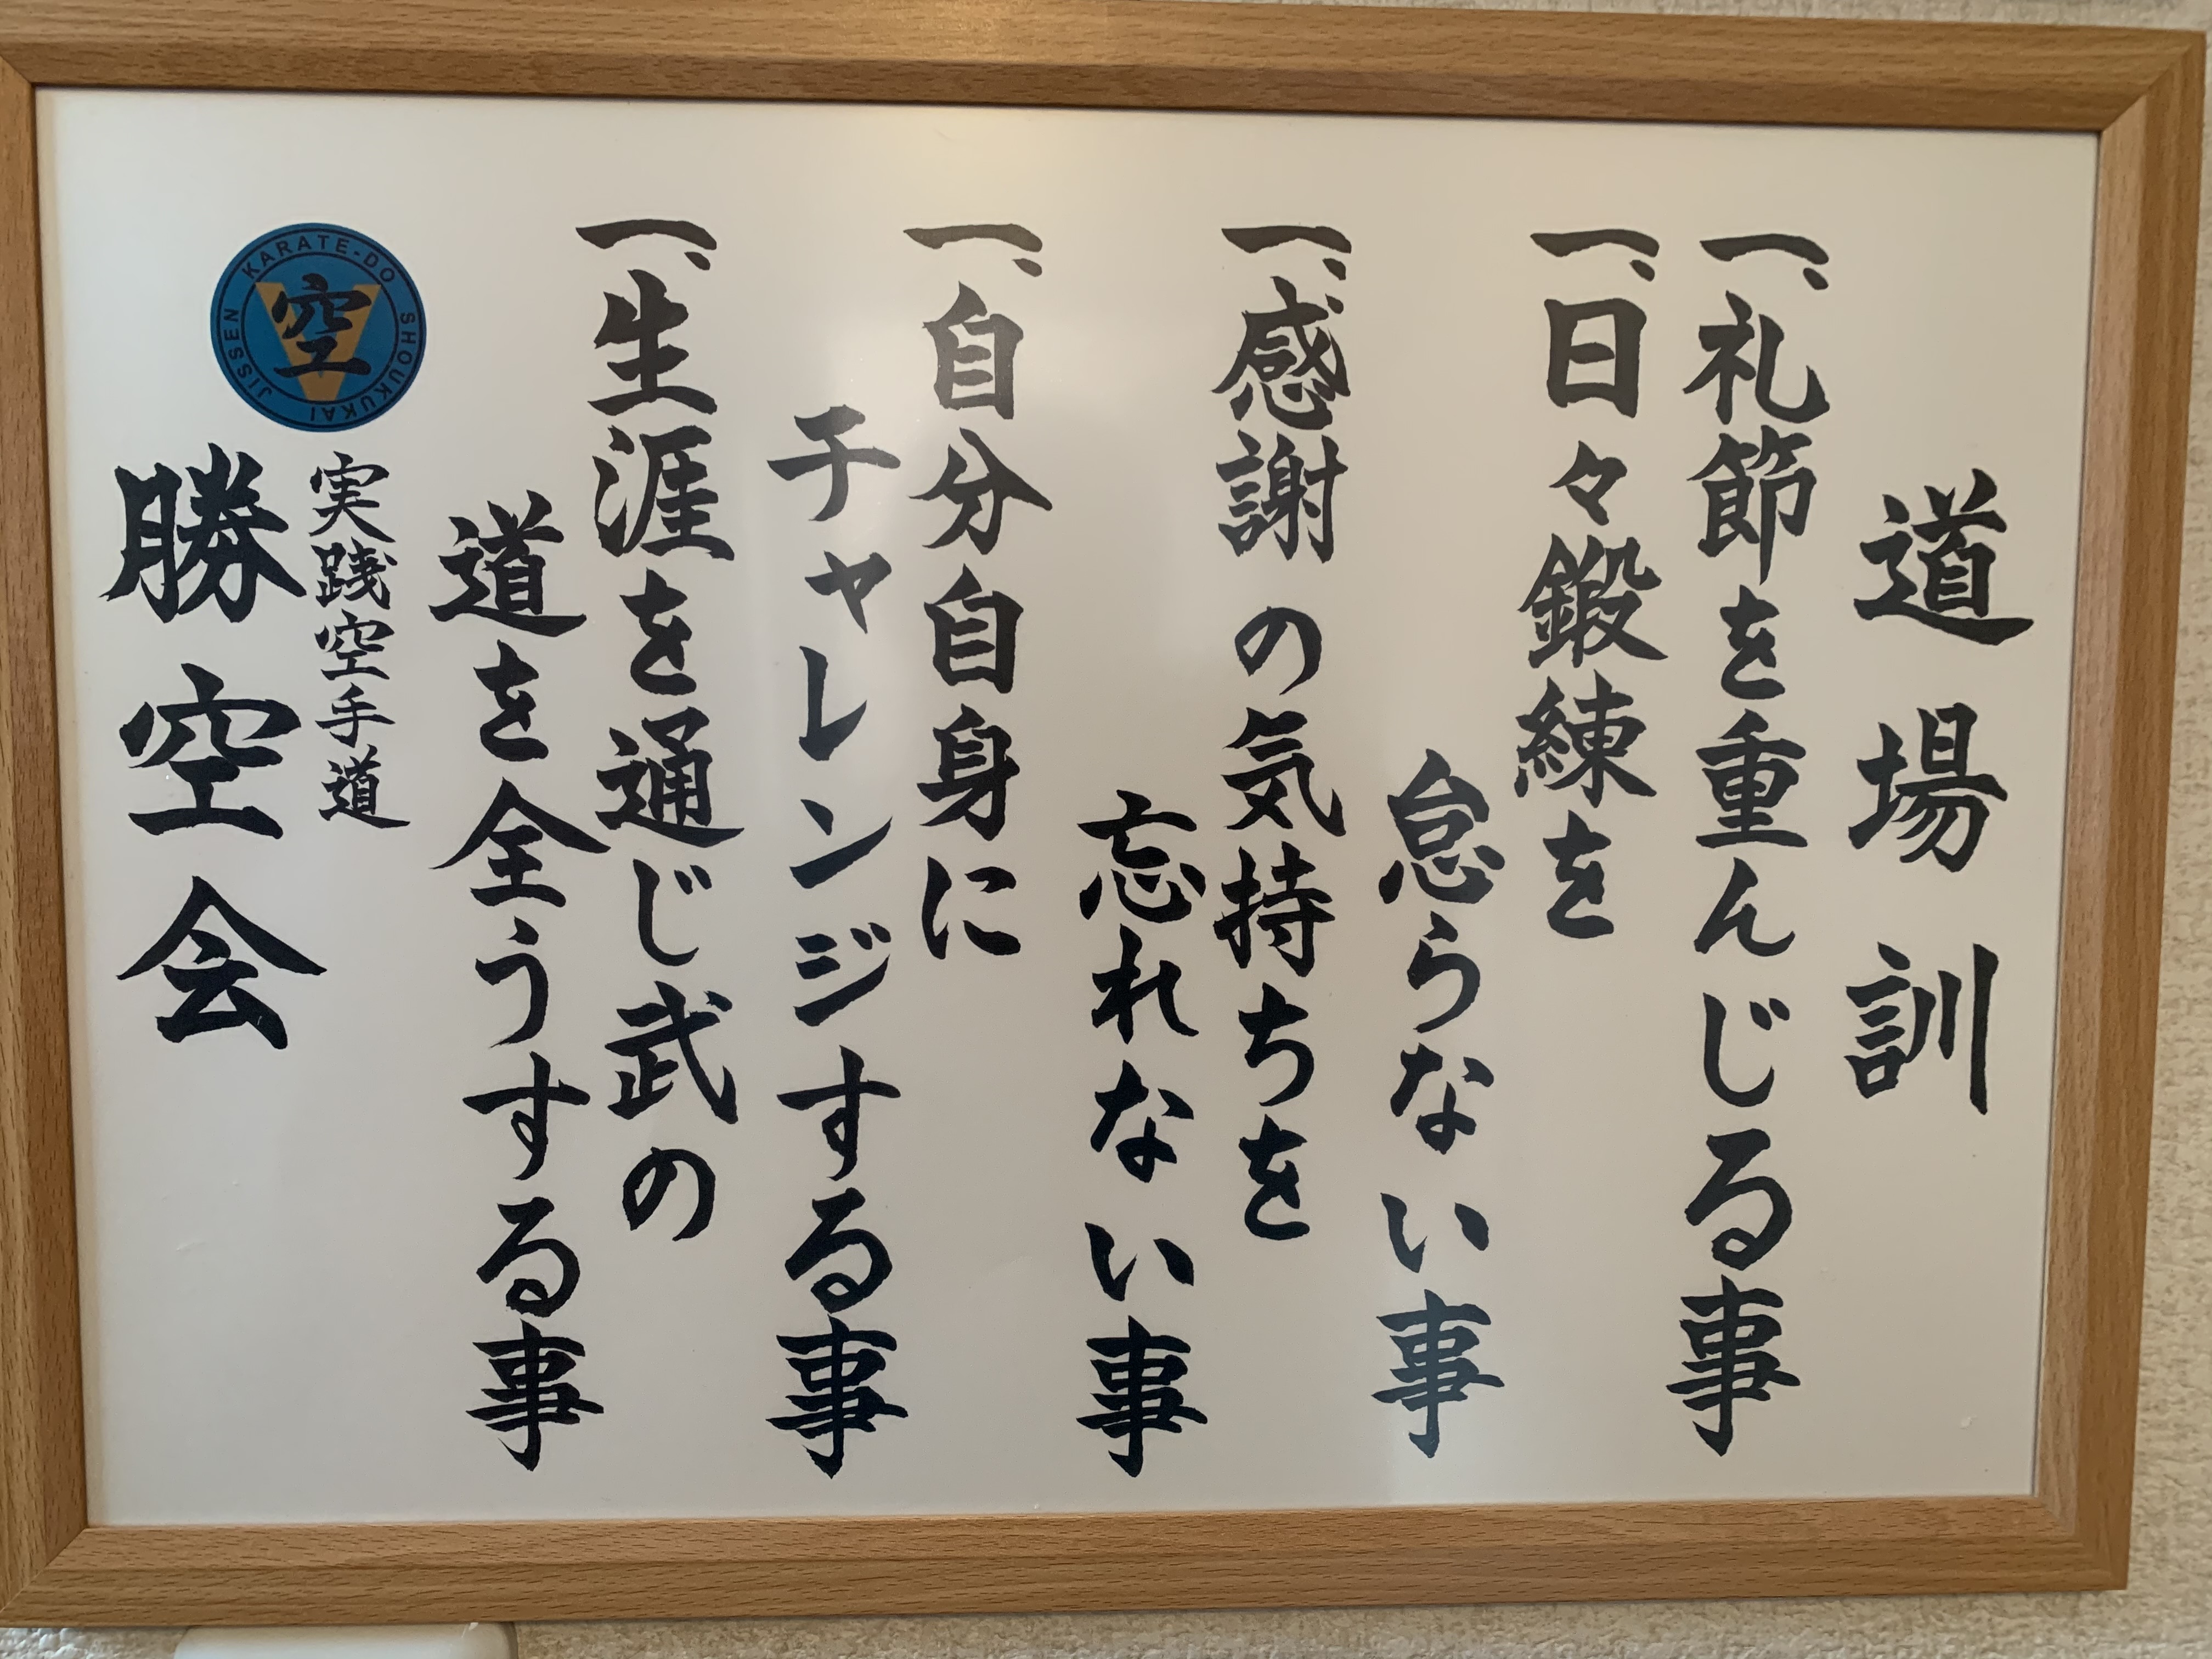 道場訓
一、礼節を重んじる事
一、日々鍛練を
怠らない事
一、感謝の気持ちを
忘れない事
一、自分自身に
チャレンジする事
一、生涯を通じ武の
道を全うする事
実践空手道
勝空会
空
JISSEN KARATE-DO SHOUKUKAI